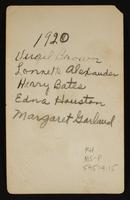 1920
Virgil Brown
Lonnette Alexander
Henry Bates
Edna Houston
Margaret Garland
RH
MS-P